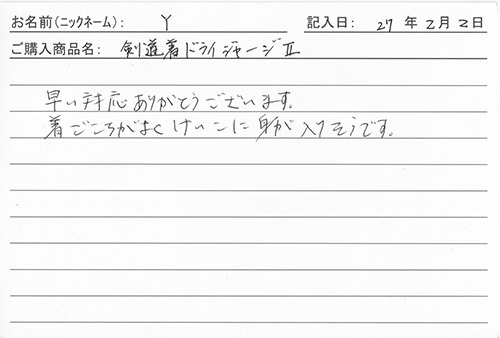 お名前(ニックネーム): Y 記入日: 27 年 2月 2日
ご購入商品名: 剣道着ドライジャージⅡ
早い対応ありがとうございます。
着ごこちがよくけいこに身が入りそうです。